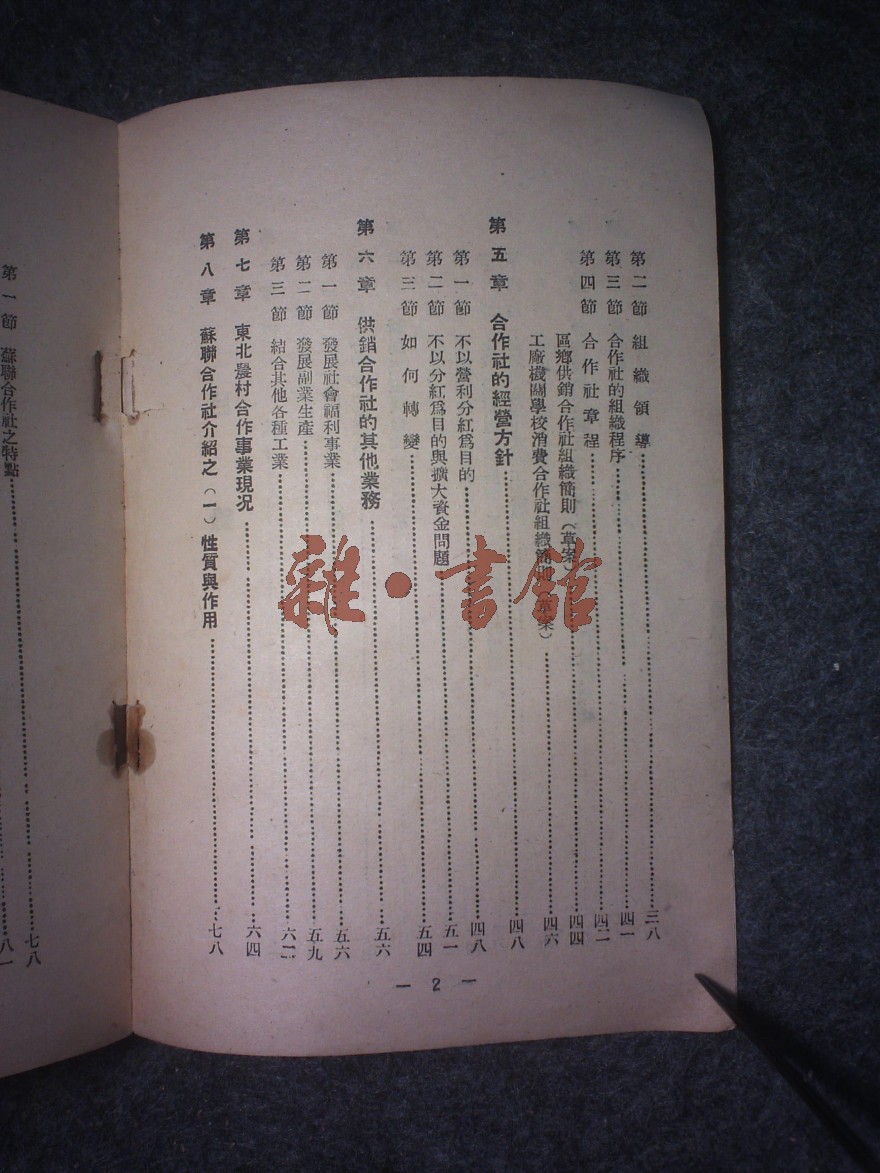 第二節 組織領導…三八
第三節 合作社的組織程序…四一
第四節 合作社章程…四二
區鄉供銷合作社組織簡則(草案)…四四
工廠機關學校消費合作社組織簡則(草案)…四六
第五章 合作社的經營方針…四八
第一節 不以營利分紅爲目的…四八
第二節 不以分紅爲目的與擴大資金問題…五一
第三節 如何轉變…五四
第六章 供銷合作社的其他業務…五六
第一節 發展社會福利事業…五六
第二節 發展副業生產…五九
第三節 結合其他各種工業…六二
第七章 東北農村合作事業現況…六四
第八章 蘇聯合作社介紹之(一)性質與作用…七八
— 2 —
第一節 蘇聯合作社之特點…七八
八一
雜·書館